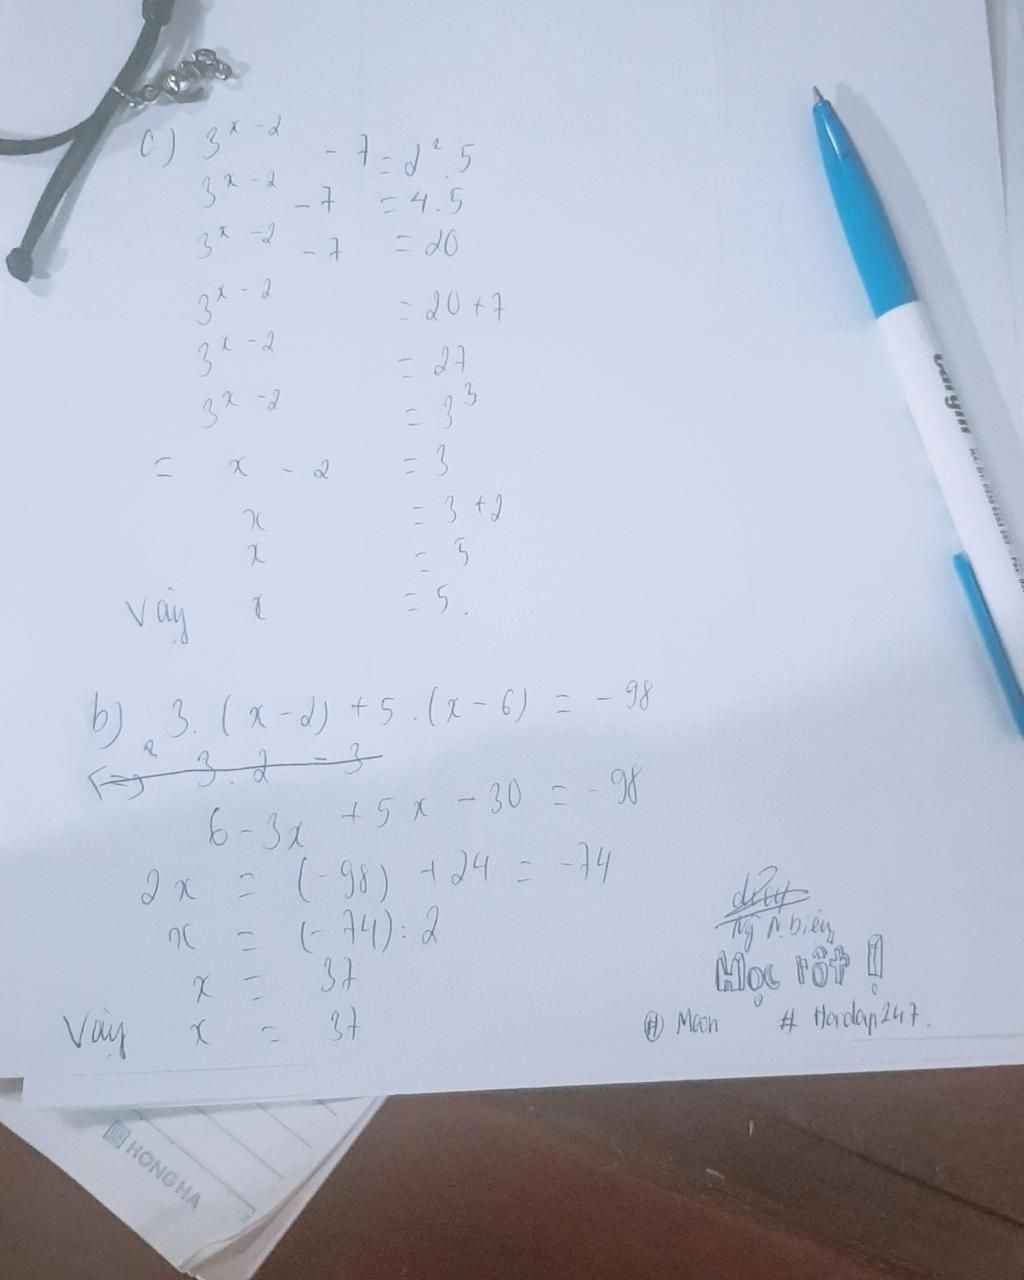 c) 3^{x-2} - 7 = 2^2.5
3^{x-2} - 7 = 4.5
3^{x-2} - 7 = 20
3^{x-2} = 20 + 7
3^{x-2} = 27
3^{x-2} = 3^3
= x - 2 = 3
x = 3 + 2
x = 5
Vậy x = 5.
b) 3.(x-2) + 5.(x-6) = -98
6 - 3x + 5x - 30 = -98
2x = (-98) + 24 = -74
x = (-74) : 2
x = 37
Vậy x = 37
Học tốt !
# Hoidap247.
HONG HA